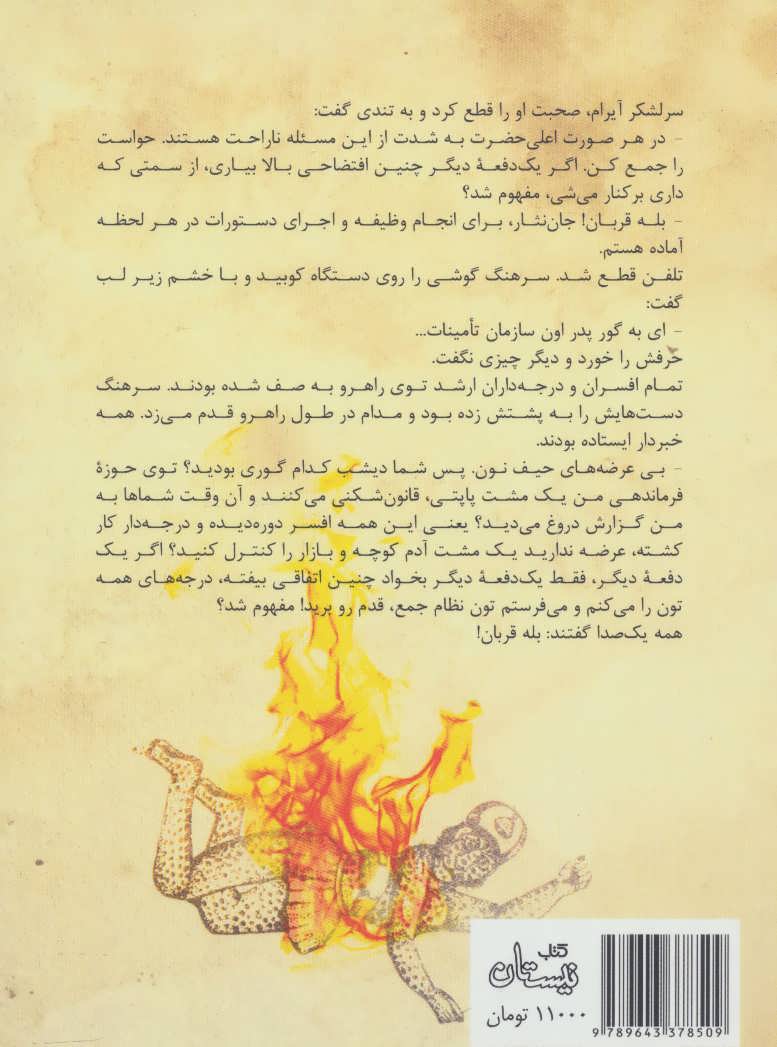 سرلشکر آیرام، صحبت او را قطع کرد و به تندی گفت:
- در هر صورت اعلی‌حضرت به شدت از این مسئله ناراحت هستند. حواست
را جمع کن. اگر یک‌دفعهٔ دیگر چنین افتضاحی بالا بیاری، از سمتی که
داری برکنار می‌شی، مفهوم شد؟
- بله قربان! جان‌نثار، برای انجام وظیفه و اجرای دستورات در هر لحظه
آماده هستم.
تلفن قطع شد. سرهنگ گوشی را روی دستگاه کوبید و با خشم زیر لب
گفت:
- ای به گور پدر اون سازمان تأمینات...
حرفش را خورد و دیگر چیزی نگفت.
تمام افسران و درجه‌داران ارشد توی راهرو به صف شده بودند. سرهنگ
دست‌هایش را به پشتش زده بود و مدام در طول راهرو قدم می‌زد. همه
خبردار ایستاده بودند.
- بی عرضه‌های حیف نون. پس شما دیشب کدام گوری بودید؟ توی حوزهٔ
فرماندهی من یک مشت پاپتی، قانون‌شکنی می‌کنند و آن وقت شماها به
من گزارش دروغ می‌دید؟ یعنی این همه افسر دوره‌دیده و درجه‌دار کار
کشته، عرضه ندارید یک مشت آدم کوچه و بازار را کنترل کنید؟ اگر یک
دفعهٔ دیگر، فقط یک‌دفعهٔ دیگر بخواد چنین اتفاقی بیفته، درجه‌های همه
تون را می‌کنم و می‌فرستم تون نظام جمع، قدم رو برید! مفهوم شد؟
همه یک‌صدا گفتند: بله قربان!
کتاب
نیستان
۱۱۰۰۰ تومان
9 789643 378509